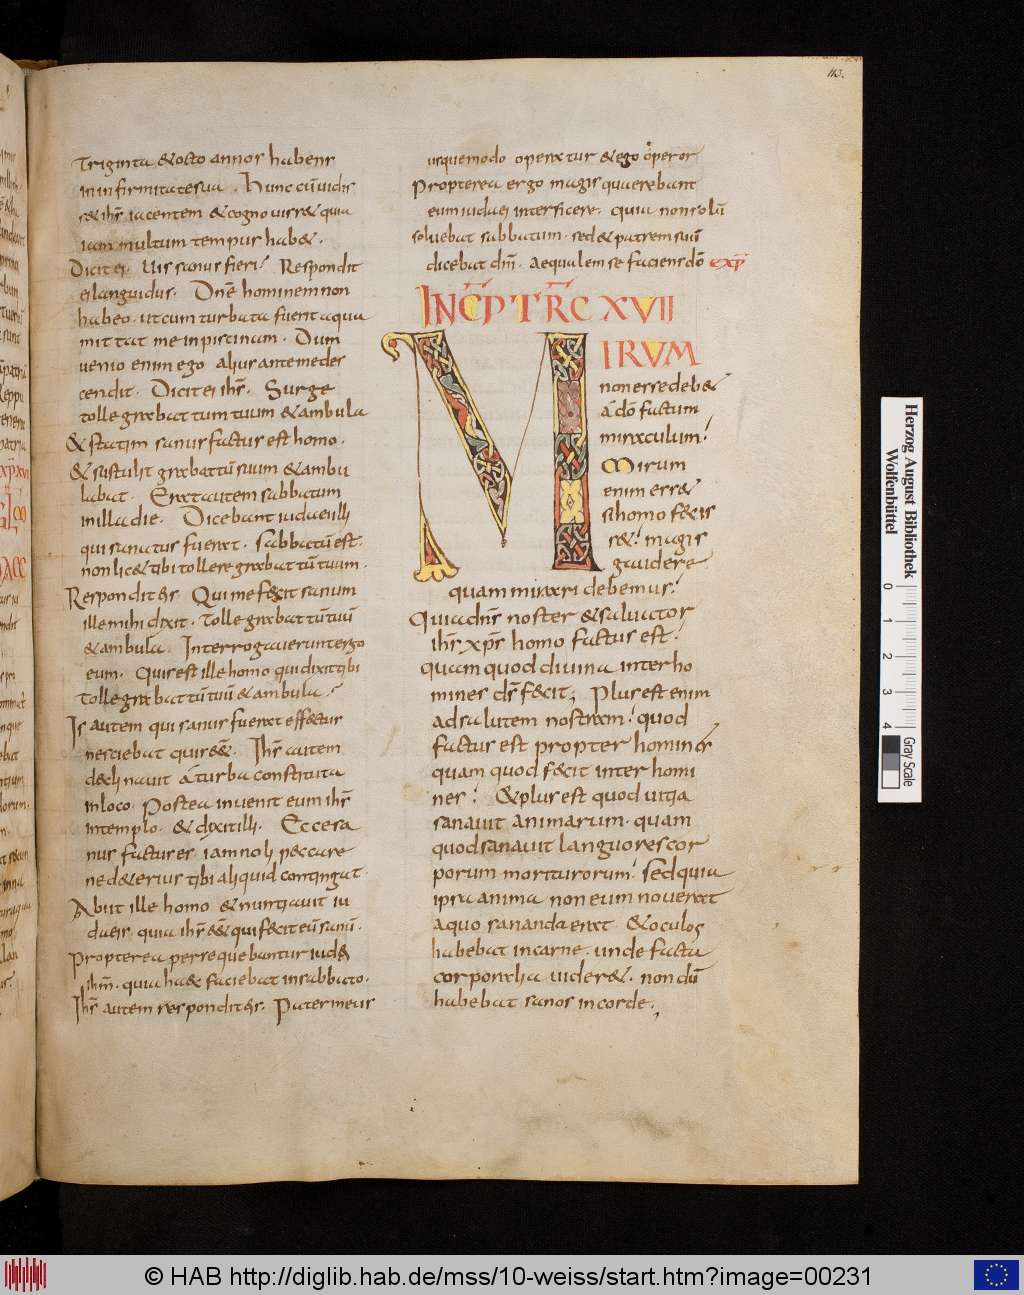 113.
Triginta & octo annos habens
in infirmitate sua. Hunc cū uidis
s& ihs iacentem & cognouiss& quia
iam multum tempus hab&.
Dicit ei. Uis sanus fieri? Respondit
ei languidus. Dn̄e hominem non
habeo. ut cum turbata fuerit aqua
mittat me in piscinam. Dum
uenio enim ego alius ante me des
cendit. Dicit ei ihs. Surge
tolle grabattum tuum & ambula
& statim sanus factus est homo.
& sustulit grabattū suum & ambu
labat. Erat autem sabbatum
in illa die. Dicebant iudaei illi
qui sanatus fuerat. Sabbatū est.
non lic& tibi tollere grabattū tuum.
Respondit eis. Qui me fecit sanum
ille mihi dixit. Tolle grabattū tuū
& ambula. Interrogauerunt ergo
eum. Quis est ille homo qui dixit tibi
tolle grabattū tuū & ambula?
Is autem qui sanus fuerat effectus
nesciebat quis e&. Ihs autem
declinauit a turba constituta
in loco. Postea inuenit eum ihs
in templo. & dixit illi. Ecce sa
nus factus es iam noli peccare
ne d&erius tibi aliquid contingat.
Abiit ille homo & nuntiauit iu
daeis. quia ihs e& qui fecit eū sanū.
Propterea persequebantur iudei
ihm. quia haec faciebat in sabbato.
Ihs autem respondit eis. Pater meus
usque modo operatur & ego operor
Propterea ergo magis quaerebant
eum iudaei interficere. quia non solū
soluebat sabbatum. sed & patrem suū
dicebat dm̄. aequalem se faciens dō exp̄
INCP TRC XVII
MIRUM
non esse deb&
a dō factum
miraculum?
Mirum
enim ess&
si homo fecis
s&? magis
gaudere
quam mirari debemus?
Quia dn̄s noster & saluator
ihs xps homo factus est?
quam quod diuina inter ho
mines ds fecit; Plus est enim
ad salutem nostram? quod
factus est propter homines
quam quod fecit inter homi
nes? & plus est quod uitia
sanauit animarum. quam
quod sanauit languores cor
porum moriturorum? Sed quia
ipsa anima non eum nouerat
a quo sananda erat. & oculos
habebat in carne. unde facta
corporalia uider&. nondū
habebat sanos in corde;
Herzog August Bibliothek
Wolfenbüttel
0 1 2 3 4
Gray Scale
© HAB http://diglib.hab.de/mss/10-weiss/start.htm?image=00231